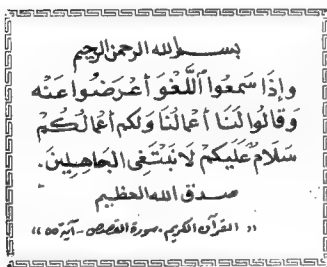 بسم الله الرحمن الرحيم
وَإِذَا سَمِعُوا اللَّغْوَ أَعْرَضُوا عَنْهُ
وَقَالُوا لَنَا أَعْمَالُنَا وَلَكُمْ أَعْمَالُكُمْ
سَلَامٌ عَلَيْكُمْ لَا نَبْتَغِي الْجَاهِلِينَ.
صدق الله العظيم
"القرآن الكريم. سورة القصص - آية ٥٥"